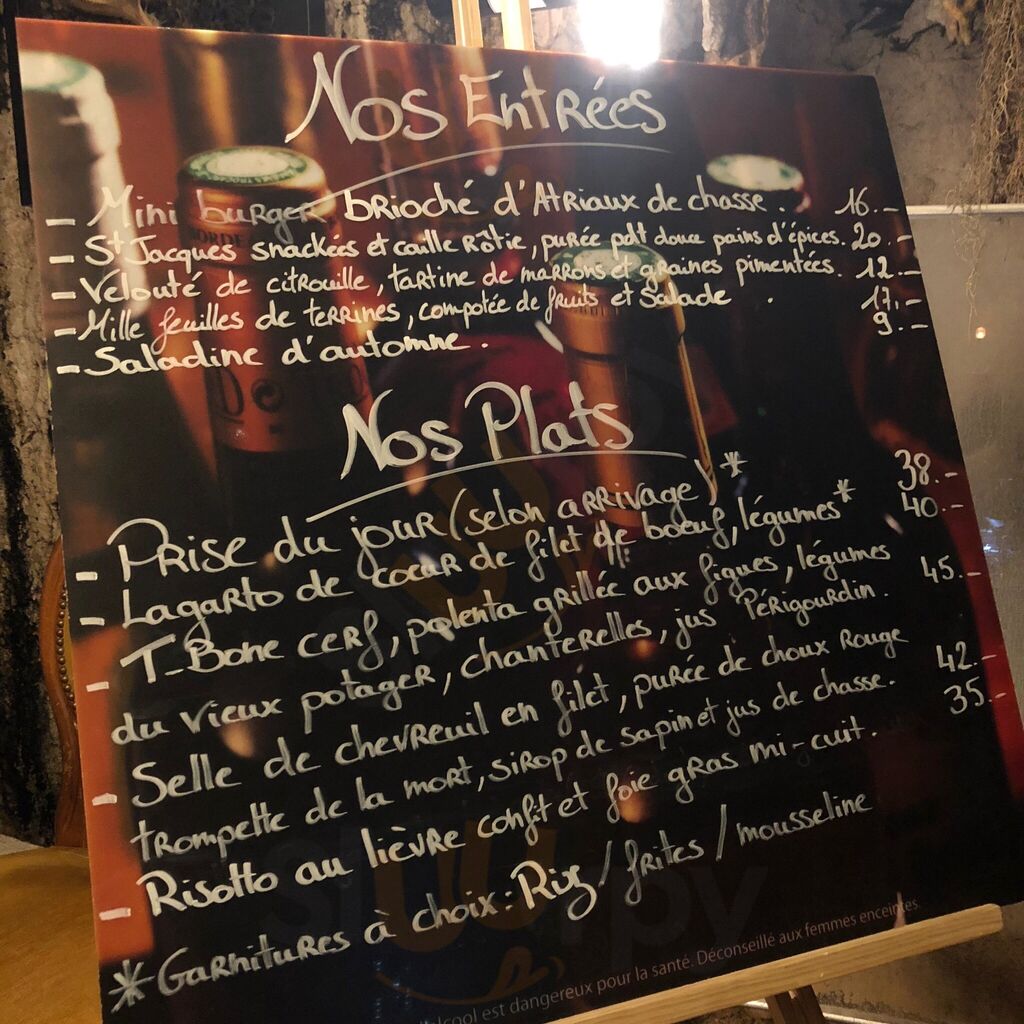 Nos Entrées
- Mini burger brioché d'Atriaux de chasse. 16.-
- St Jacques snackées et caille Rôtie, purée pdt douce pains d'épices. 20.-
- Velouté de citrouille, tartine de marrons et graines pimentées. 12.-
- Mille feuilles de terrines, compotée de fruits et Salade. 17.-
- Saladine d'automne. 9.-
Nos Plats
- Prise du jour (selon arrivage)* 38.-
- Lagarto de coeur de filet de boeuf, légumes* 40.-
- T-Bone cerf, polenta grillée aux figues, légumes 45.-
du vieux potager, chanterelles, jus Périgourdin.
- Selle de chevreuil en filet, purée de choux rouge 42.-
trompette de la mort, sirop de sapin et jus de chasse.
- Risotto au lièvre confit et foie gras mi-cuit. 35.-
*Garnitures à choix: Riz / frites / mousseline
alcool est dangereux pour la santé. Déconseillé aux femmes enceintes.
sluurpy